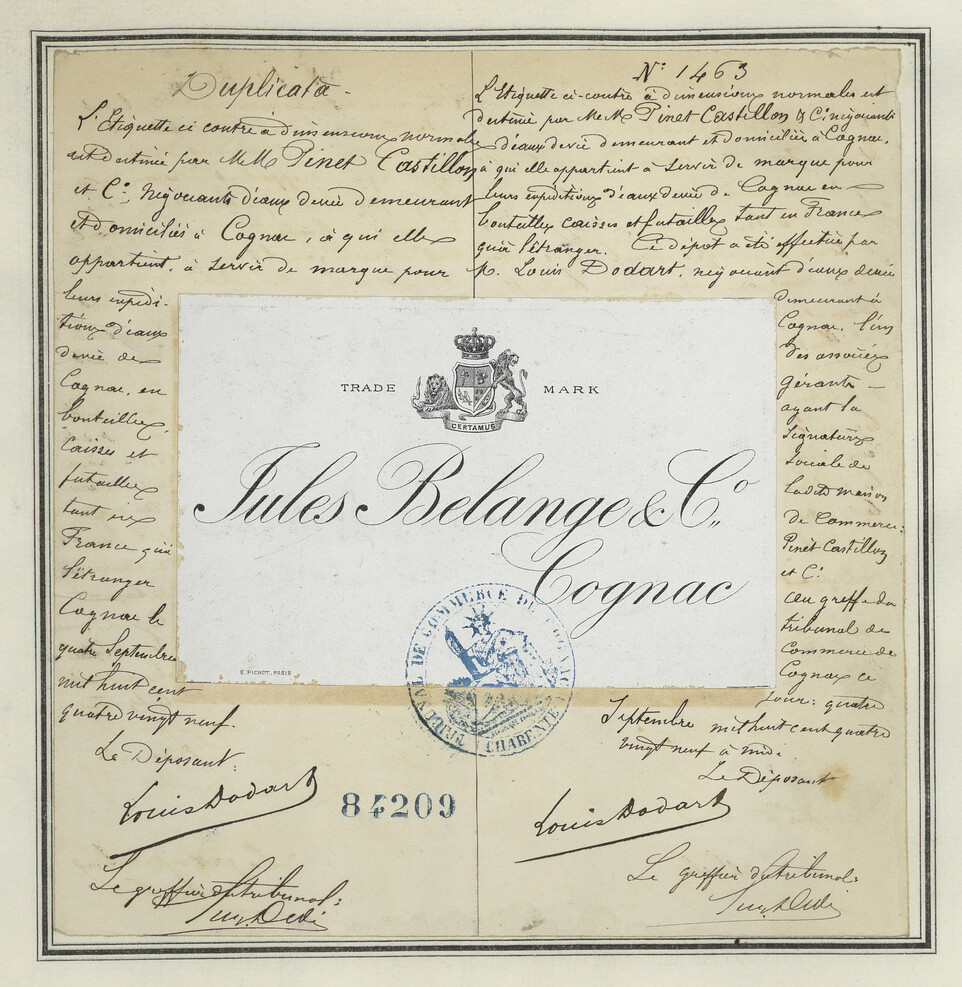 Duplicata -
L'Etiquette ci contre à dimensions normales
est destinée par MM Pinet Castillon
et Cie. Négociants d'eaux de vie demeurant
et domiciliés à Cognac, à qui elle
appartient, à servir de marque pour
leurs expédi-
tions d'eaux
de vie de
Cognac, en
bouteilles,
caisses et
futailles
tant en
France qu'à
l'étranger
Cognac le
quatre Septembre
mil huit cent
quatre vingt neuf.
Le Déposant:
Louis Dodart
Le greffier du tribunal:
N° 1463
L'Etiquette ci-contre à dimensions normales est
destinée par MM. Pinet Castillon & Cie négociants
d'eaux de vie demeurant et domiciliés à Cognac,
à qui elle appartient à servir de marque pour
leurs expéditions d'eaux de vie de Cognac en
bouteilles caisses et futailles tant en France
qu'à l'étranger. Ce dépôt a été effectué par
M. Louis Dodart, négociant d'eaux de vie
demeurant à
Cognac, l'un
des associés
gérants -
ayant la
signature
sociale de
la dite maison
de Commerce:
Pinet Castillon
et Cie
au greffe du
tribunal de
Commerce de
Cognac ce
jour: quatre
Septembre mil huit cent quatre
vingt neuf à midi
Le Déposant
Louis Dodart
Le greffier du tribunal:
TRADE MARK
CERTAMUS
Jules Belange & Co.,
Cognac
E. PICHOT, PARIS
TRIBUNAL DE COMMERCE DE COGNAC
CHARENTE
84209